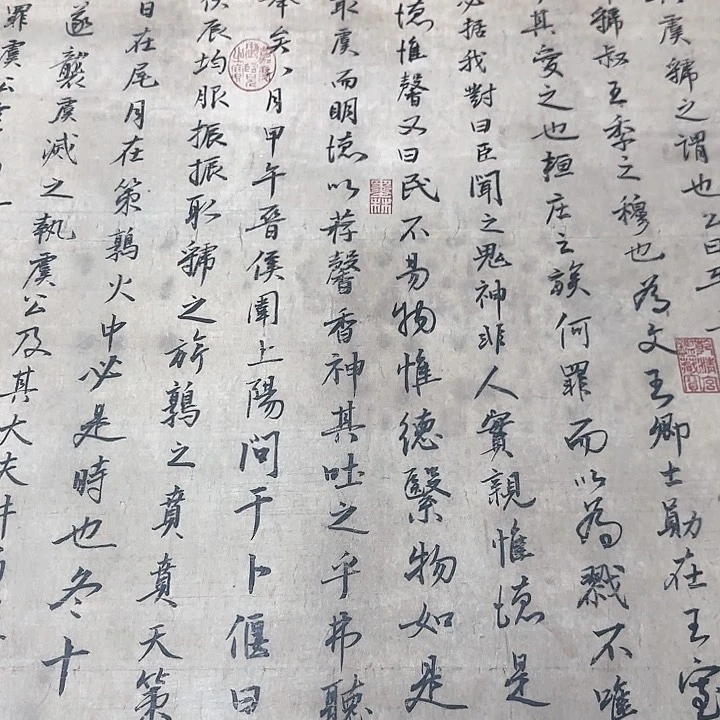 虞虢之謂也公曰吾
虢叔王季之穆也為文王卿士勛在王室
其愛之也桓莊之族何罪而以為戮不唯
必据我對曰臣聞之鬼神非人實親惟德是
德惟馨又曰民不易物惟德繄物如是
取虞而明德以薦馨香神其吐之乎弗聽
舉矣八月甲午晉侯圍上陽問于卜偃曰
伏辰均服振振取虢之旂鶉之賁賁天策
日在尾月在策鶉火中必是時也冬十
遂襲虞滅之執虞公及其大夫井
罪虞公